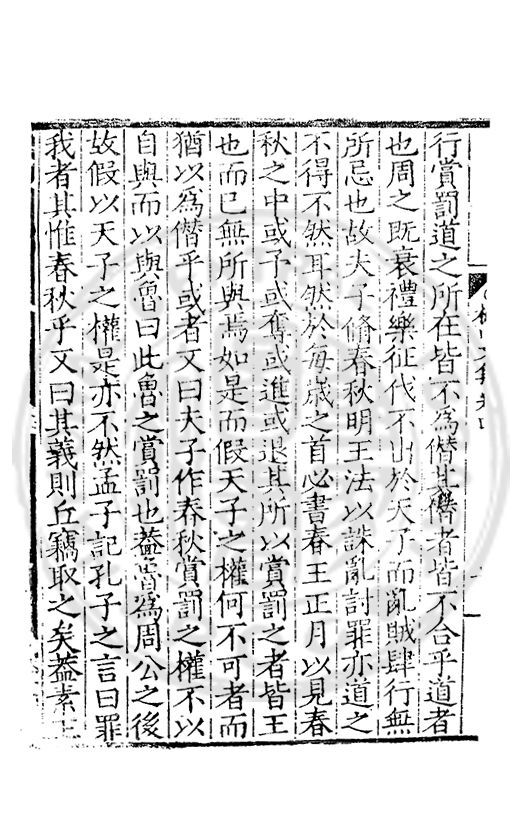 行賞罰道之所在皆不為僭其僭者皆不合乎道者
也周之既衰禮樂征伐不出於天子而亂賊肆行無
所忌也故夫子脩春秋明王法以誅亂討罪亦道之
不得不然耳然於每歲之首必書春王正月以見春
秋之中或予或奪或進或退其所以賞罰之者皆王
也而已無所與焉如是而假天子之權何不可者而
猶以為僭乎或者又曰夫子作春秋賞罰之權不以
自與而以與魯曰此魯之賞罰也葢魯為周公之後
故假以天子之權是亦不然孟子記孔子之言曰罪
我者其惟春秋乎又曰其義則丘竊取之矣葢素王